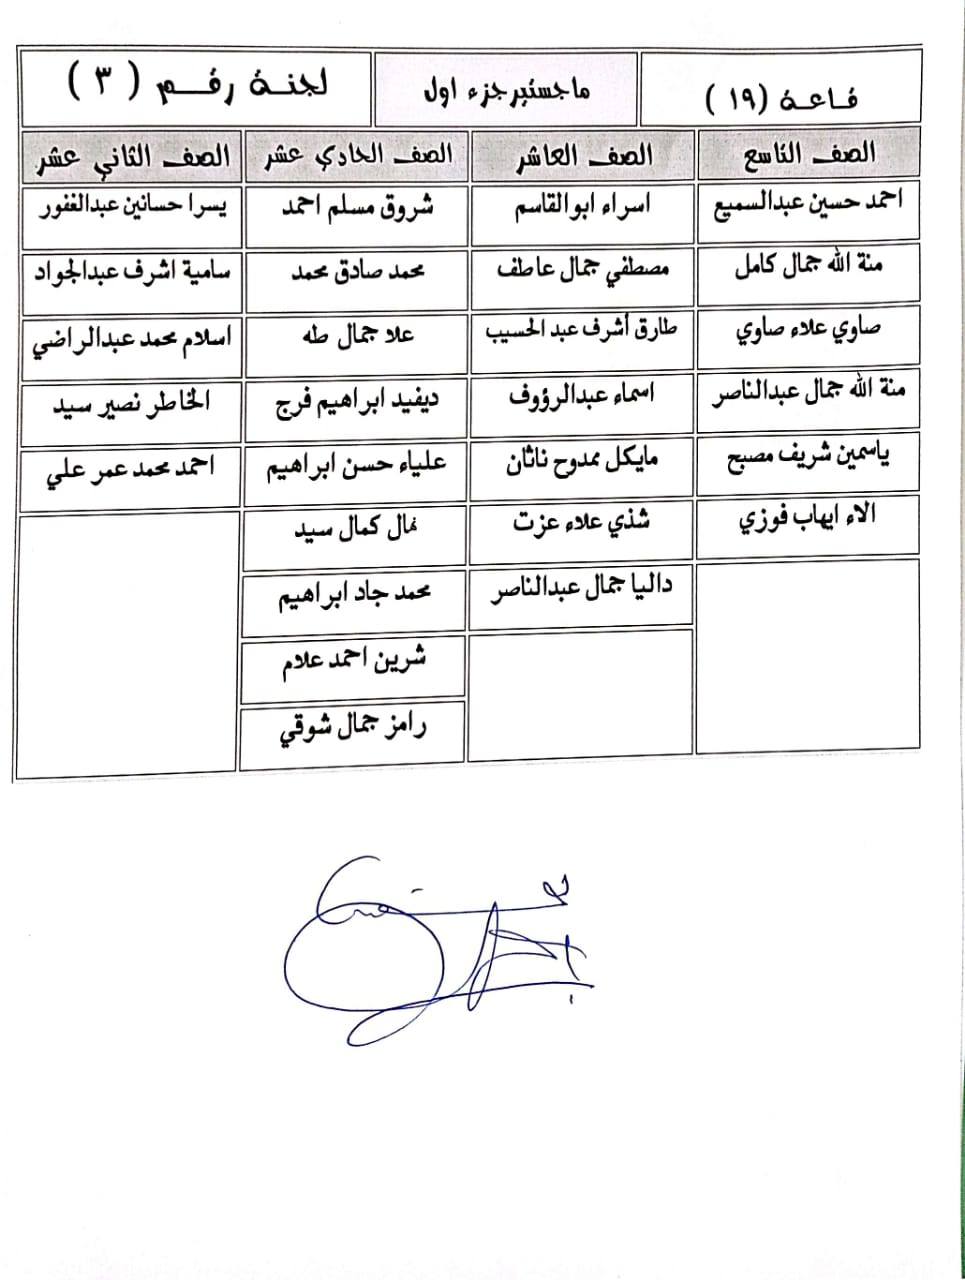 قاعة (١٩) ماجستير جزء اول لجنة رقم (٣)
الصف التاسع الصف العاشر الصف الحادي عشر الصف الثاني عشر
احمد حسين عبدالسميع اسراء ابوالقاسم شروق مسلم احمد يسرا حسانين عبدالغفور
منة الله جمال كامل مصطفي جمال عاطف محمد صادق محمد سامية اشرف عبدالجواد
صاوي علاء صاوي طارق أشرف عبد الحسيب علا جمال طه اسلام محمد عبدالراضي
منة الله جمال عبدالناصر اسماء عبدالرؤوف ديفيد ابراهيم فرج الخاطر نصير سيد
ياسمين شريف مصبح مايكل ممدوح ناثان علياء حسن ابراهيم احمد محمد عمر علي
الاء ايهاب فوزي شذي علاء عزت كمال سيد
داليا جمال عبدالناصر محمد جاد ابراهيم
شرين احمد علام
رامز جمال شوقي